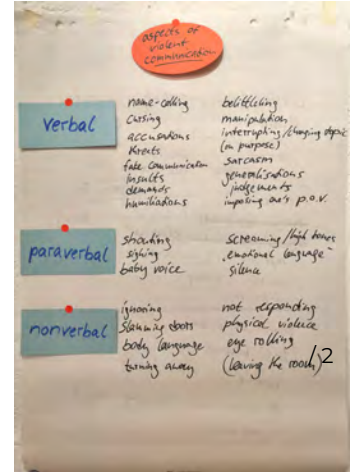 aspects of
violent
communication
verbal
name-calling
cursing
accusations
threats
fake communication
insults
demands
humiliations
belittleling
manipulation
interrupting/changing topic
(on purpose)
sarcasm
generalisations
judgements
imposing one's p.o.v.
paraverbal
shouting
sighing
baby voice
screaming/high tones
"emotional language"
silence
nonverbal
ignoring
slamming doors
body language
turning away
not responding
physical violence
eye rolling
(leaving the room)
/2